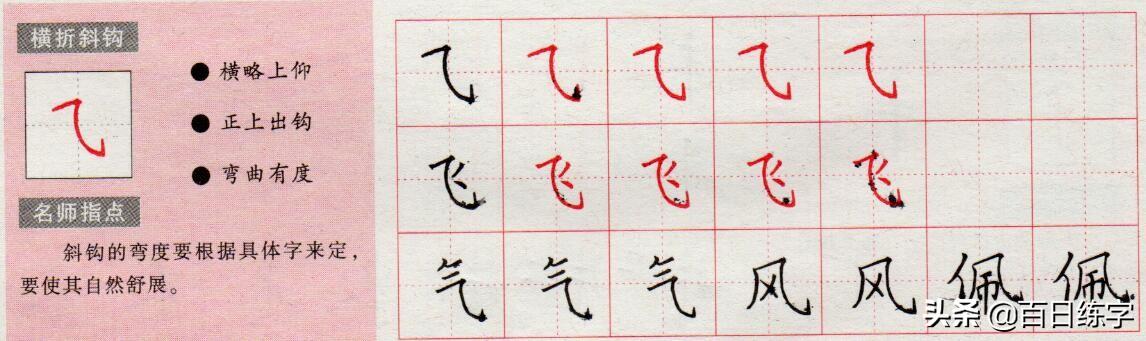 横折斜钩
⺄
● 横略上仰
● 正上出钩
● 弯曲有度
名师指点
斜钩的弯度要根据具体字来定，
要使其自然舒展。
⺄ ⺄ ⺄ ⺄ ⺄
飞 飞 飞 飞 飞
气 气 气 风 风 佩 佩
头条 @百日练字